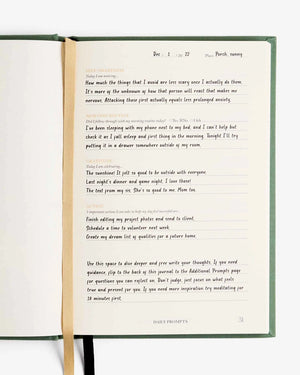 Dec / 1 / 20 22 Place: Porch, sunny
SELF-AWARENESS
Today I am noticing...
How much the things that I avoid are less scary once I actually do them.
It's more of the unknown of how that person will react that makes me
nervous. Attacking those first actually equals less prolonged anxiety.
Did I follow through with my morning routine today?
I've been sleeping with my phone next to my bed, and I can't help but
check it as I fall asleep and first thing in the morning. Tonight I'll try
putting it in a drawer somewhere outside of my room.
GRATITUDE
Today I am celebrating...
The sunshine! It felt so good to be outside with everyone.
Last night's dinner and game night. I love them!
The text from my sis. She's so good to me. Mom too.
Finish editing my project photos and send to client.
Schedule a time to volunteer next week.
Create my dream list of qualities for a future home.
Use this space to dive deeper and free write your thoughts. If you need
guidance, flip to the back of this journal to the Additional Prompts page
for questions you can reflect on. Don't judge, just focus on what feels
true and present for you. If you need more inspiration try meditating for
10 minutes first.
DAILY PROMPTS